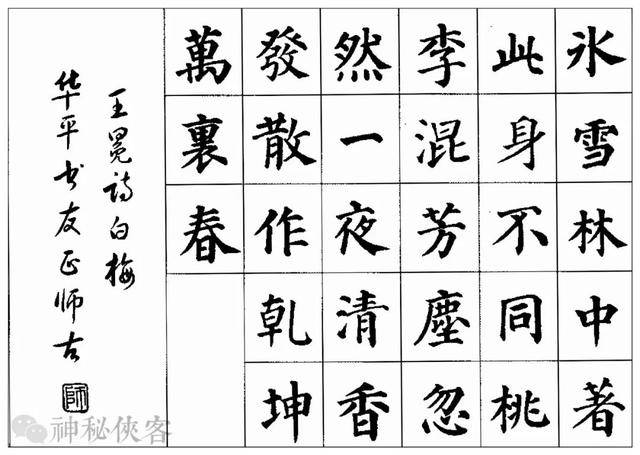 氷雪林中著
此身不同桃
李混芳塵忽
然一夜清香
發散作乾坤
萬裏春
王冕诗白梅
华平书友正师古
師
神秘侠客